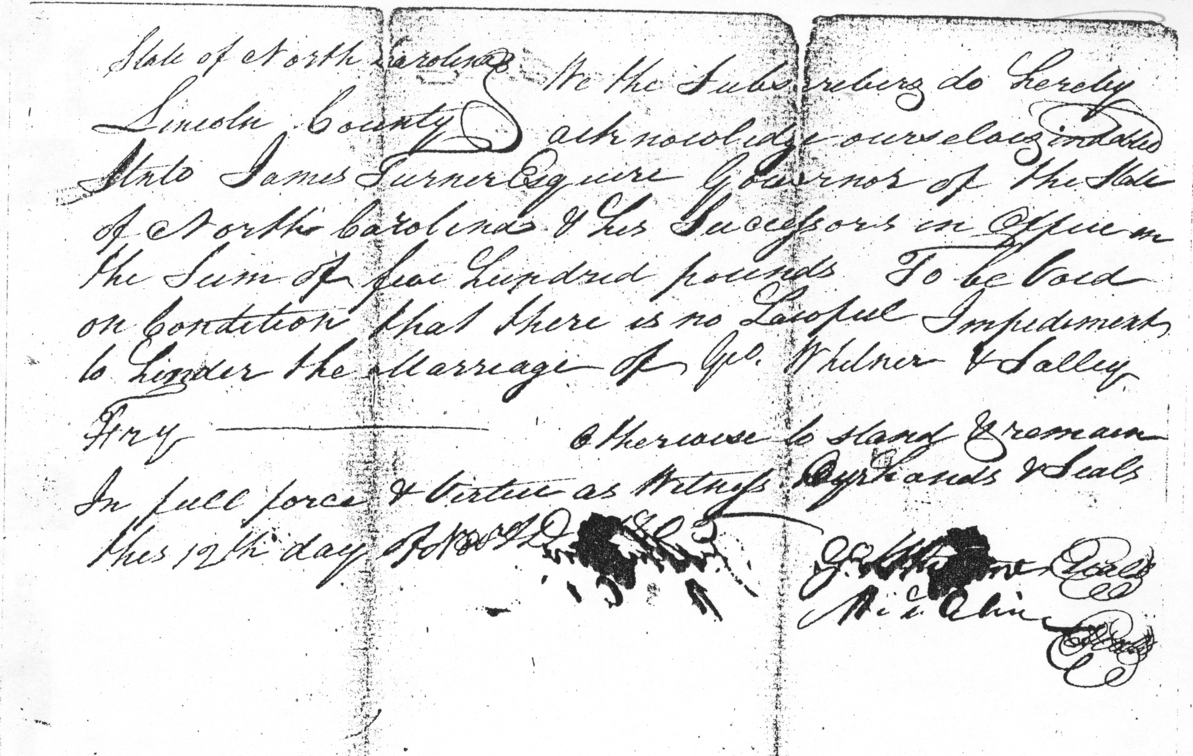 State of North Carolina
Lincoln County
We the Subscribers do hereby
acknowledge ourselves indebted
Unto James Turner Esquire Governor of the State
of North Carolina & his Successors in Office in
the Sum of five hundred pounds To be Void
on Condition that there is no Lawful Impediment
to hinder the Marriage of Geo. Whitner & Salley
Fry otherwise to stand & remain
In full force & Virtue as Witness Our hands & Seals
this 12th day of AD
Seal
Seal